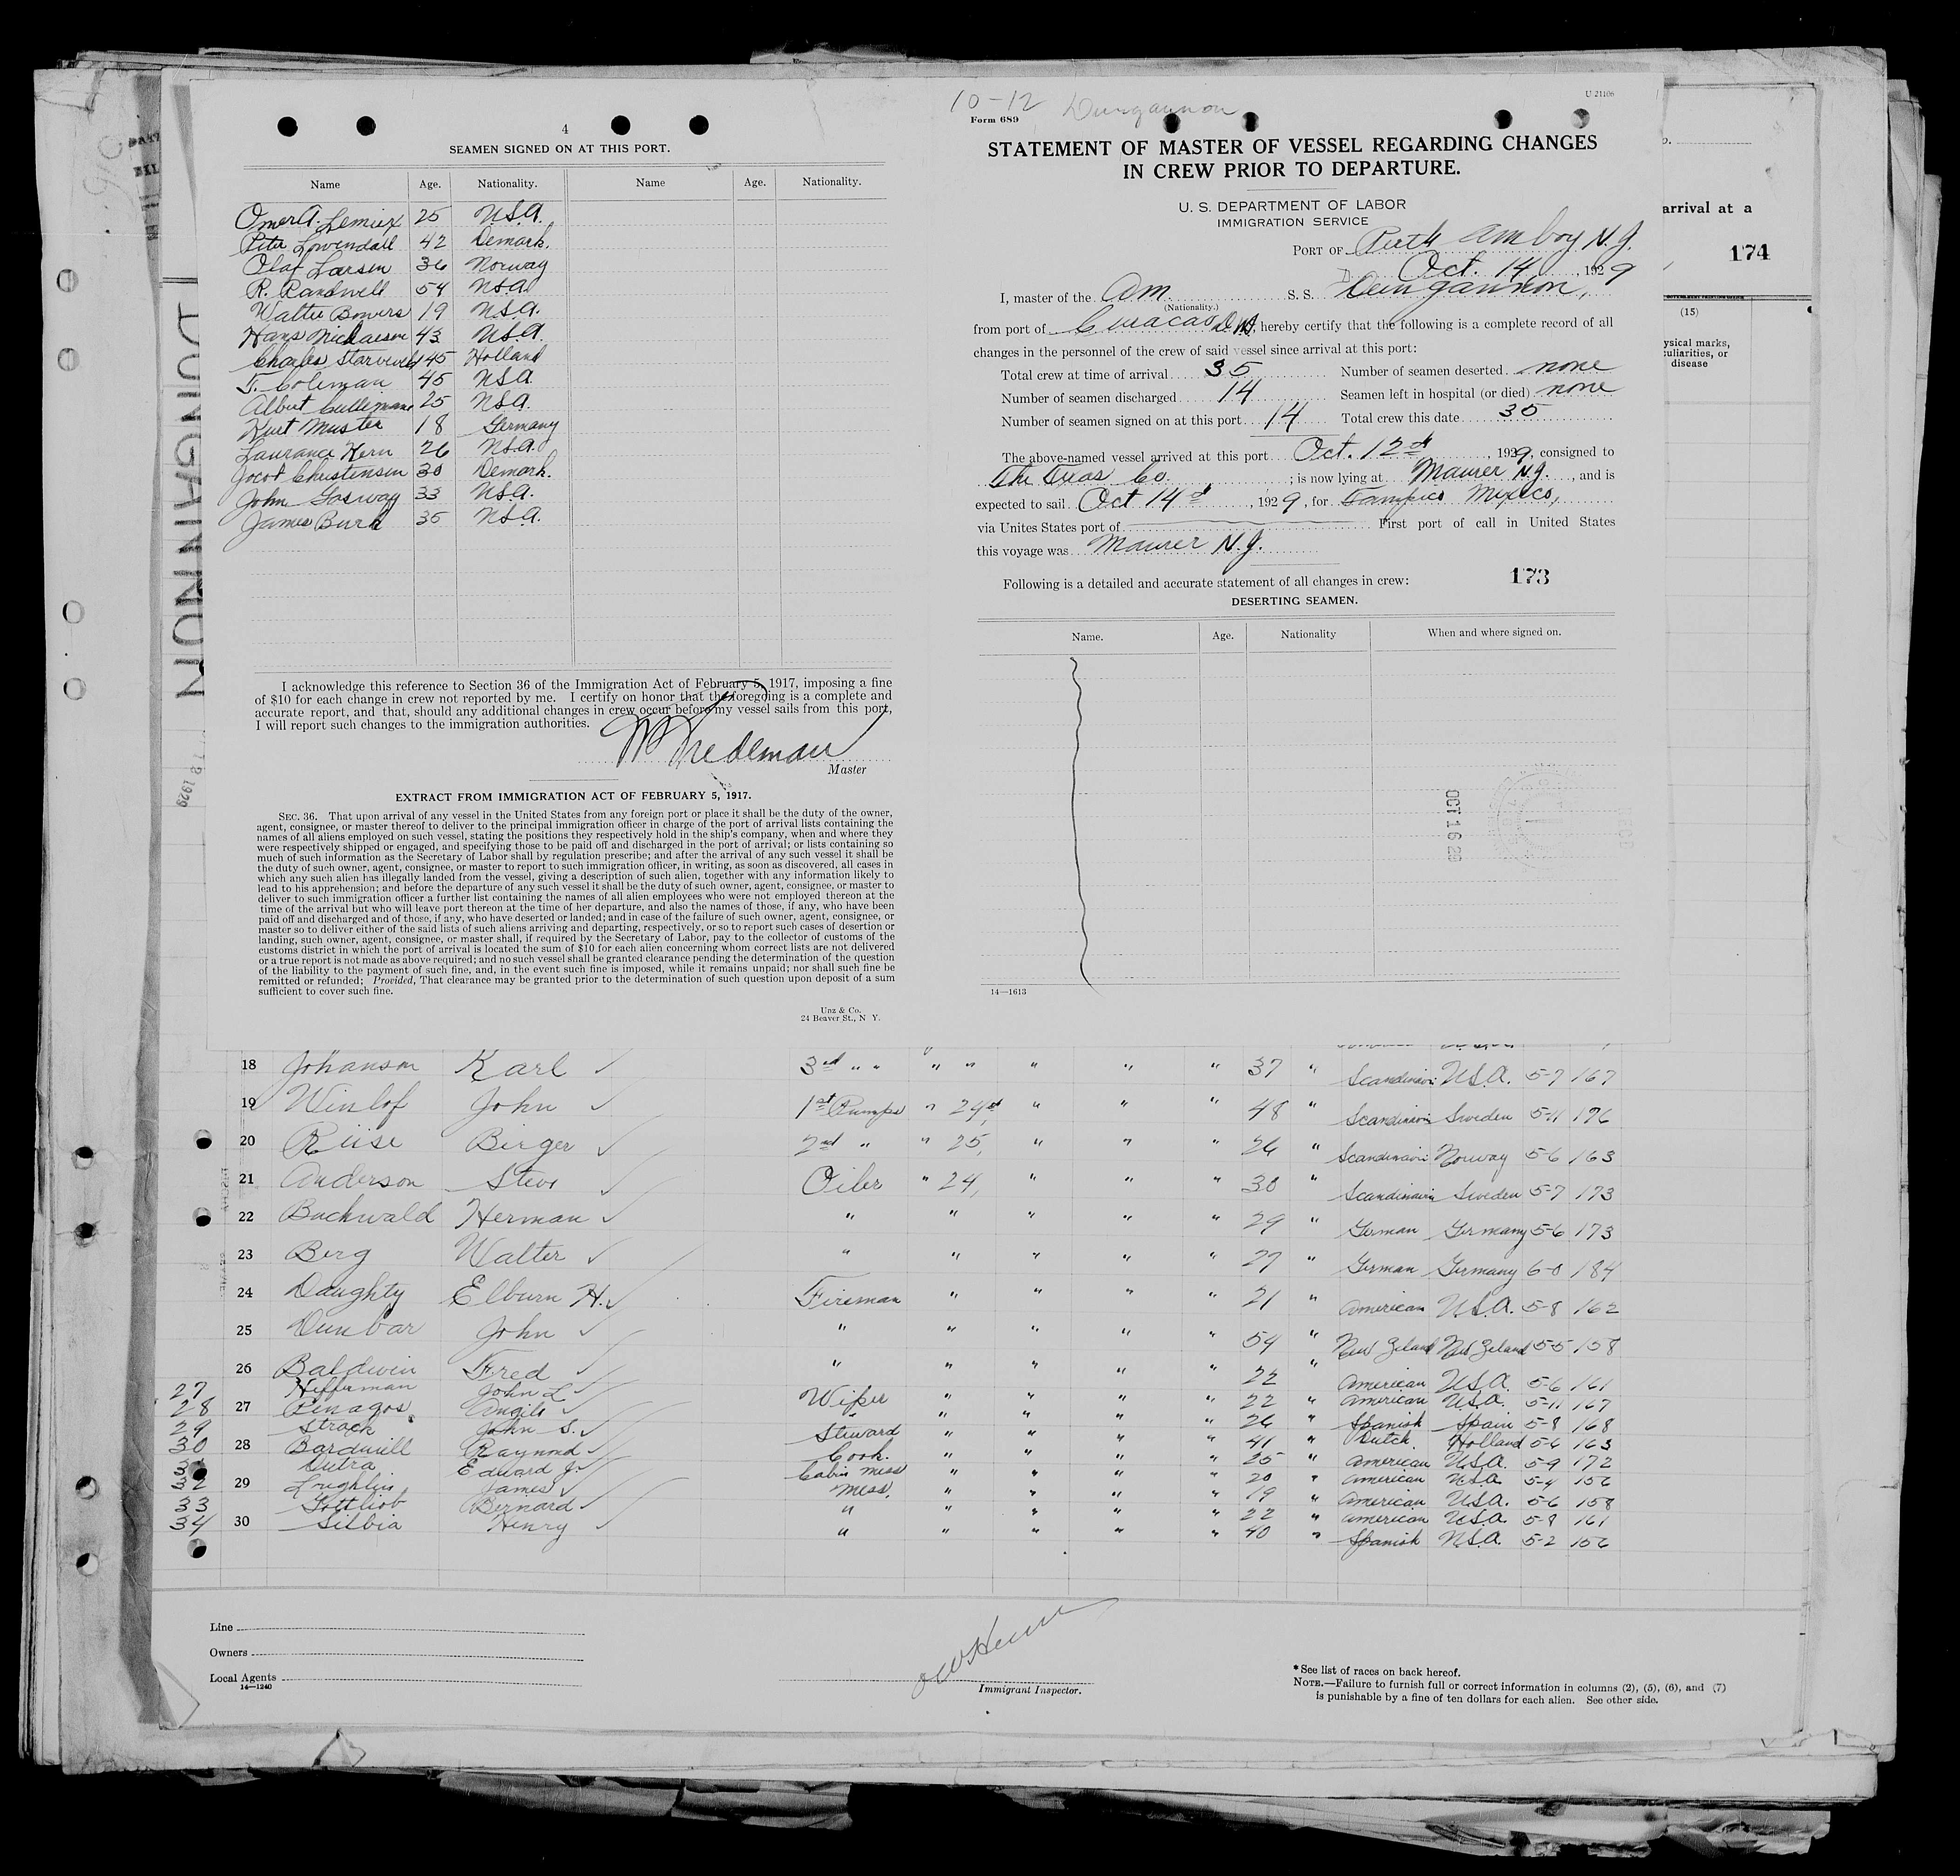 4
SEAMEN SIGNED ON AT THIS PORT.
Name Age. Nationality. Name Age. Nationality.
Omer A. Lemiex 25 U.S.A.
Peter Lowendall 42 Demark.
Olaf Larsen 36 Norway
R. Randwell 54 U.S.A.
Walter Bowers 19 U.S.A.
Hans Nichaesen 43 U.S.A.
Charles 45 Holland
T. Coleman 45 U.S.A.
Albert 25 U.S.A.
Kurt Muster 18 Germany
Laurance Hern 26 U.S.A.
Jocob Christensen 30 Demark.
John Gasway 33 U.S.A.
James Burk 35 U.S.A.
I acknowledge this reference to Section 36 of the Immigration Act of February 5, 1917, imposing a fine
of $10 for each change in crew not reported by me. I certify on honor that the foregoing is a complete and
accurate report, and that, should any additional changes in crew occur before my vessel sails from this port,
I will report such changes to the immigration authorities.
Master
EXTRACT FROM IMMIGRATION ACT OF FEBRUARY 5, 1917.
SEC. 36. That upon arrival of any vessel in the United States from any foreign port or place it shall be the duty of the owner,
agent, consignee, or master thereof to deliver to the principal immigration officer in charge of the port of arrival lists containing the
names of all aliens employed on such vessel, stating the positions they respectively hold in the ship's company, when and where they
were respectively shipped or engaged, and specifying those to be paid off and discharged in the port of arrival; or lists containing so
much of such information as the Secretary of Labor shall by regulation prescribe; and after the arrival of any such vessel it shall be
the duty of such owner, agent, consignee, or master to report to such immigration officer, in writing, as soon as discovered, all cases in
which any such alien has illegally landed from the vessel, giving a description of such alien, together with any information likely to
lead to his apprehension; and before the departure of any such vessel it shall be the duty of such owner, agent, consignee, or master to
deliver to such immigration officer a further list containing the names of all alien employees who were not employed thereon at the
time of the arrival but who will leave port thereon at the time of her departure, and also the names of those, if any, who have been
paid off and discharged and of those, if any, who have deserted or landed; and in case of the failure of such owner, agent, consignee, or
master so to deliver either of the said lists of such aliens arriving and departing, respectively, or so to report such cases of desertion or
landing, such owner, agent, consignee, or master shall, if required by the Secretary of Labor, pay to the collector of customs of the
customs district in which the port of arrival is located the sum of $10 for each alien concerning whom correct lists are not delivered
or a true report is not made as above required; and no such vessel shall be granted clearance pending the determination of the question
of the liability to the payment of such fine, and, in the event such fine is imposed, while it remains unpaid; nor shall such fine be
remitted or refunded; Provided, That clearance may be granted prior to the determination of such question upon deposit of a sum
sufficient to cover such fine.
Unz & Co.
24 Beaver St., N Y.
DUNGANNON
10-12 Dungannon
U-21106
Form 689
STATEMENT OF MASTER OF VESSEL REGARDING CHANGES
IN CREW PRIOR TO DEPARTURE.
U. S. DEPARTMENT OF LABOR
IMMIGRATION SERVICE
PORT OF Perth Amboy N.J.
Oct. 14, 1929
I, master of the Am. S. S. Dungannon,
(Nationality.)
from port of Curacao D.W.I. hereby certify that the following is a complete record of all
changes in the personnel of the crew of said vessel since arrival at this port:
Total crew at time of arrival 35 Number of seamen deserted none
Number of seamen discharged 14 Seamen left in hospital (or died) none
Number of seamen signed on at this port 14 Total crew this date 35
The above-named vessel arrived at this port Oct. 12th, 1929, consigned to
The Texas Co. ; is now lying at Maurer N.J., and is
expected to sail Oct 14th, 1929, for Tampico Mexico,
via Unites States port of First port of call in United States
this voyage was Maurer N.J.
Following is a detailed and accurate statement of all changes in crew: 173
DESERTING SEAMEN.
Name. Age. Nationality When and where signed on.
OCT 16 29
14—1613
arrival at a
174
(15)
ysical marks,
culiarities, or
disease
18 Johanson Karl 3rd " " " " " " " 37 " Scandinavi U.S.A. 5-7 167
19 Winlof John 1st Pumps " 24th " " " 48 " Scandinavi Sweden 5-11 176
20 Riise Birger 2nd " " 25, " " " 26 " Scandinavi Norway 5-6 163
21 Anderson Steve Oiler " 24, " " " 30 " Scandinavi Sweden 5-7 173
22 Buchwald Herman " " " " " 29 " German Germany 5-6 173
23 Berg Walter " " " " " 27 " German Germany 6-0 184
24 Daughty Elburn H. Fireman " " " " 21 " American U.S.A. 5-8 162
25 Dunbar John " " " " " 54 " New Zeland New Zeland 5-5 158
26 Baldwin Fred " " " " " 22 " American U.S.A. 5-6 161
27 Hefferman John L. Wiper " " " " 22 " American U.S.A. 5-11 167
28 27 Penagos Angelo " " " " " 26 " Spanish Spain 5-8 168
29 Strack John S. Steward " " " " 41 " Dutch. Holland 5-6 163
30 28 Bardwill Raymond Cook. " " " " 25 " American U.S.A. 5-9 172
Dutra Edward J. Cabin mess " " " " 20 " American U.S.A. 5-4 156
32 29 Loughlin James Mess. " " " " 19 " American U.S.A. 5-6 158
33 Gottliob Bernard " " " " " 22 " American U.S.A. 5-8 161
34 30 Silbia Henry " " " " " 40 " Spanish U.S.A. 5-2 156
Line
Owners
Local Agents
14—1240
Immigrant Inspector.
*See list of races on back hereof.
NOTE.—Failure to furnish full or correct information in columns (2), (5), (6), and (7)
is punishable by a fine of ten dollars for each alien. See other side.